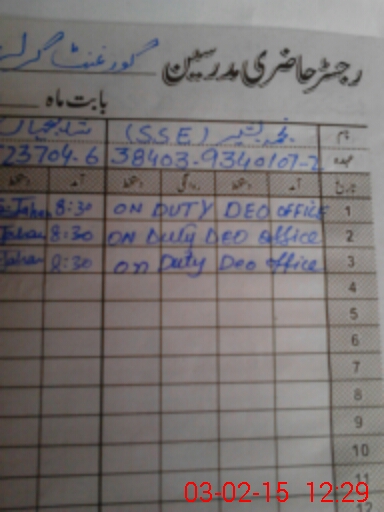 رجسٹر حاضری مدرسین گورنمنٹ گرلز
بابت ماہ
نام (SSE)
عہدہ 38403-9340107-2 23704-6
تاریخ آمد دستخط روانگی دستخط آمد دستخط
1 ON DUTY DEO OFFICE 8:30 Jahan
2 ON Duty DEO office 8:30 Jahan
3 on Duty Deo office 8:30 Jahan
4
5
6
7
8
9
10
11
12
03-02-15 12:29